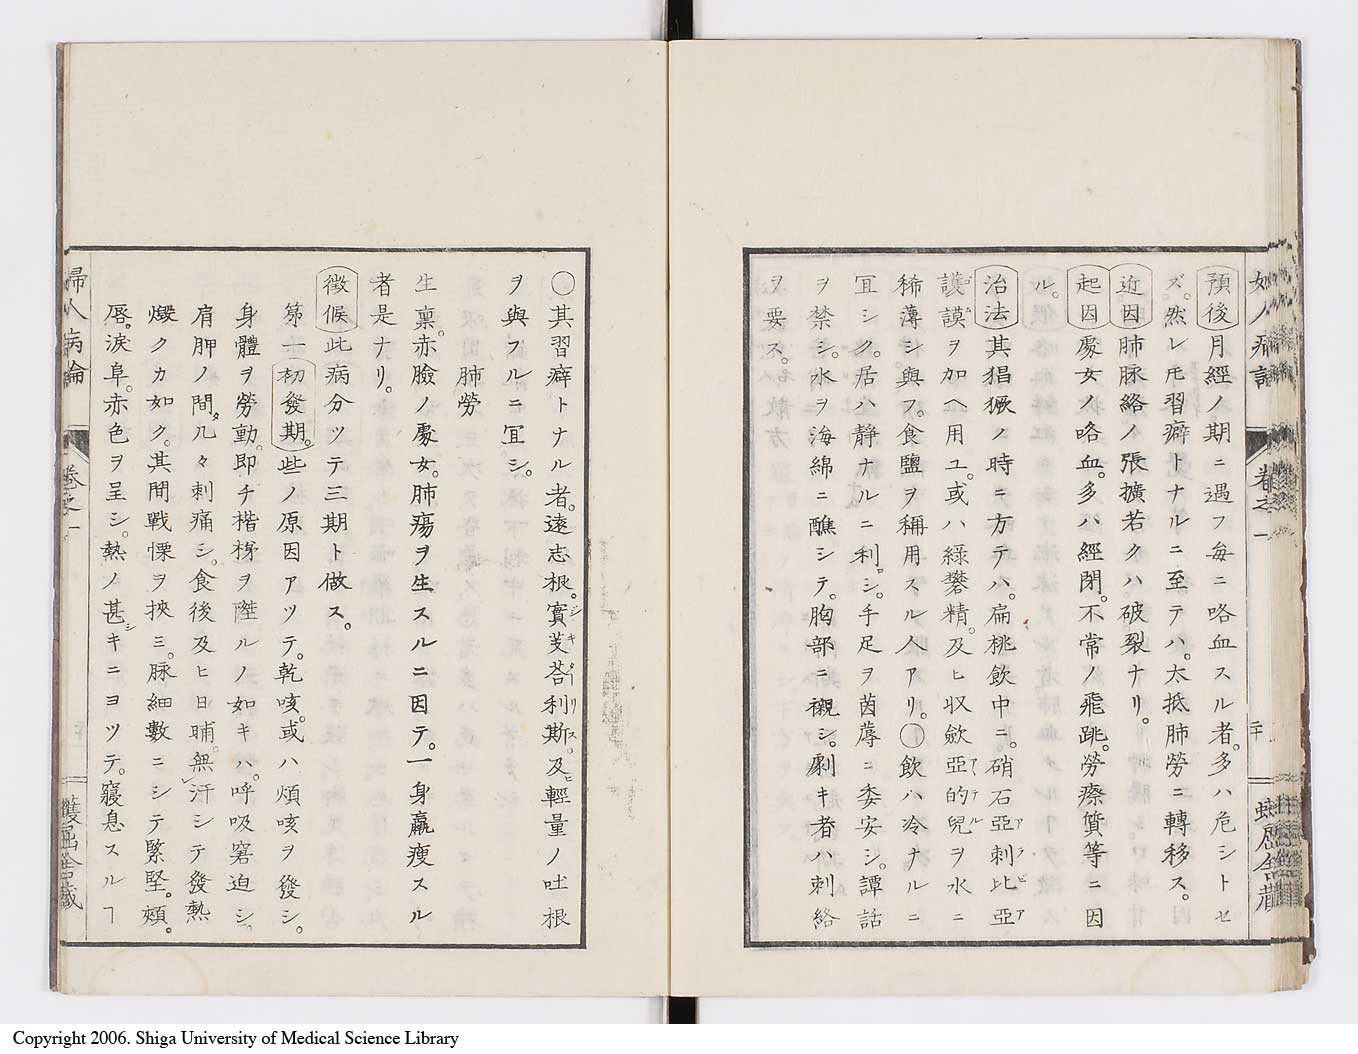 預後月經ノ期ニ遇フ毎ニ咯血スル者。多ハ危シトセ
ズ。然レ𪜈習癖トナルニ至テハ。大抵肺勞ニ轉移ス。
近因肺脉絡ノ張擴若クハ。破裂ナリ。
起因處女ノ咯血。多ハ經閉。不常ノ飛跳。勞瘵質等ニ因
ル。
治法其猖獗ノ時ニ方テハ。扁桃飲中ニ。硝石亞刺比亞
護謨ヲ加ヘ用ユ。或ハ綠礬精。及ヒ収歛亞的兒ヲ水ニ
稀薄シ與フ。食鹽ヲ稱用スル人アリ。○飲ハ冷ナルニ
冝シク。居ハ静ナルニ利シ。手足ヲ茵蓐ニ委安シ。譚話
ヲ禁シ。水ヲ海綿ニ醮シテ。胸部ニ襯シ。劇キ者ハ刺絡
ヲ要ス。
女人病論 卷之一
○其習癖トナル者。遠志根。實芰荅利斯。及ヒ輕量ノ吐根
ヲ與フルニ冝シ。
肺勞
生稟。赤臉ノ處女。肺瘍ヲ生スルニ因テ。一身羸瘦スル
者是ナリ。
徴候此病分ツテ三期ト做ス。
第一初發期。些ノ原因アツテ。乾咳。或ハ煩咳ヲ發シ。
身體ヲ勞動。即チ楷梯ヲ陞ルノ如キハ。呼吸窘迫シ。
肩胛ノ間。凡々刺痛シ。食後及ヒ日晡。無汗シテ發熱
燬クカ如ク。其間戰慄ヲ挾ミ。脉細數ニシテ緊堅。頰。
唇。涙阜。赤色ヲ呈シ。熱ノ甚シキニヨツテ。寢息スルヿ
婦人病論 卷之一
Copyright 2006. Shiga University of Medical Science Library